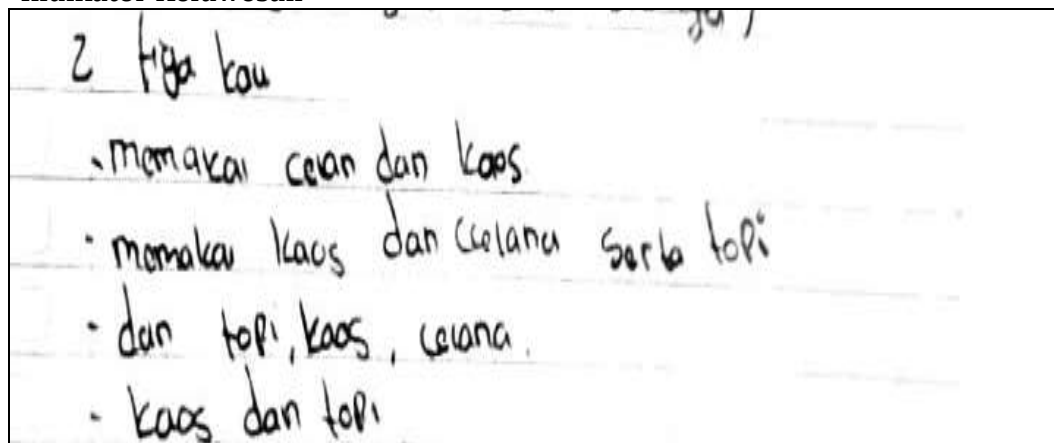 2 tiga kau
. memakai celan dan kaos.
. memakai kaos dan celana serta topi
- dan topi, kaos, celana.
- kaos dan topi